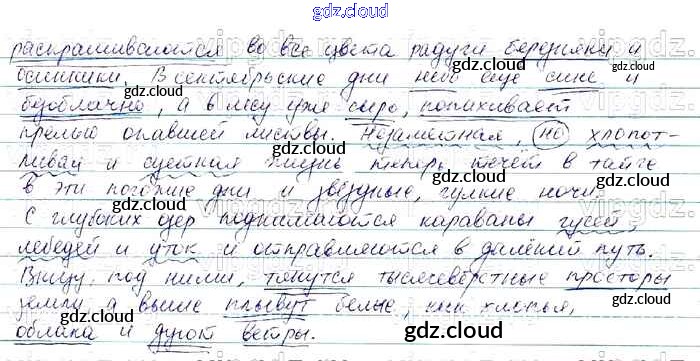 gdz.cloud
раскрашиваются во все цвета радуги березняки и
осинники. В сентябрьские дни небо ещё сине и
безоблачно, а в лесу уже сыро, попахивает
прелью опавшей листвы. Незаметная, но хлопот-
ливая и суетная жизнь теперь течёт в тайге
в эти погожие дни и звёздные, гулкие ночи.
С глубоких озёр поднимаются караваны гусей,
лебедей и уток и отправляются в далёкий путь.
Внизу, под ними, тянутся тысячевёрстные просторы
земли, а выше плывут белые, как хлопья,
облака и дуют ветры.
gdz.cloud